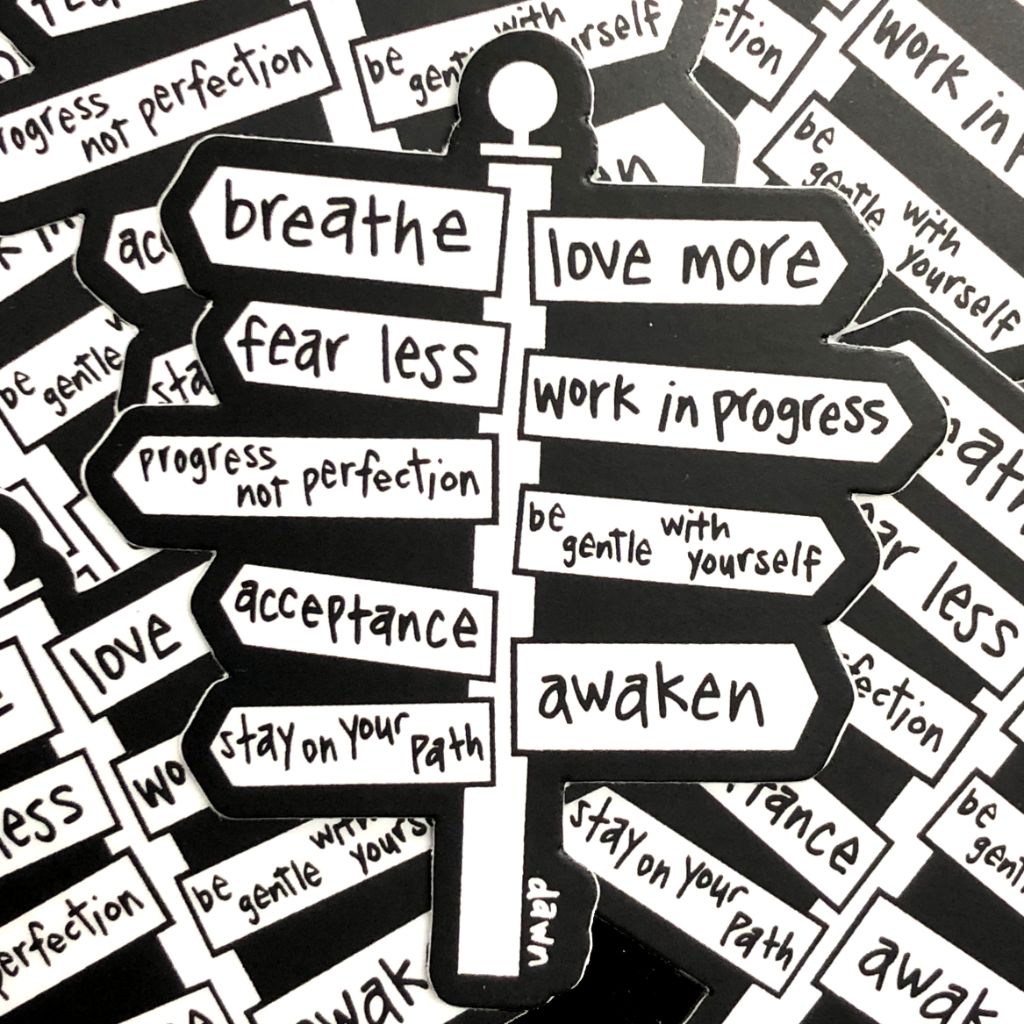 breathe
love more
fear less
work in progress
progress
not perfection
be
gentle with
yourself
acceptance
awaken
stay on your
path
dawn
progress
not perfection
be
with
yourself
work in
be
gentle with
yourself
be
gentle
love
less
be
gentle
less
stay on your
path
be
awak